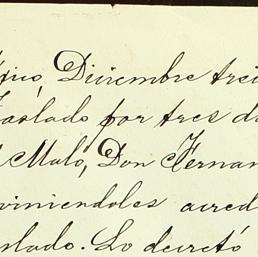 jico, Diciembre trei
Traslado por tres d
l Malo, Don Fernan
viniendoles acred
slado. Lo decretó